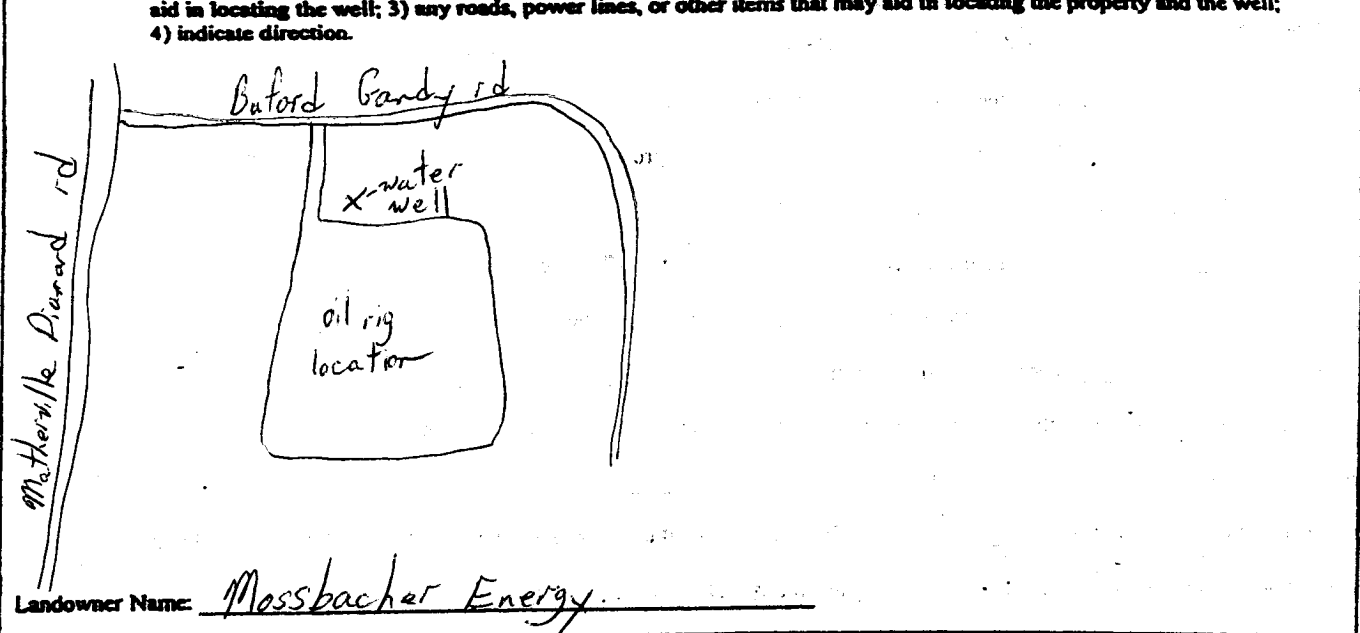 aid in locating the well; 3) any roads, power lines, or other items that may aid in locating the property and the well;
4) indicate direction.
Buford Gandy rd
Matherville Diamard rd
x-water
well
oil rig
location
Landowner Name: Mossbacher Energy